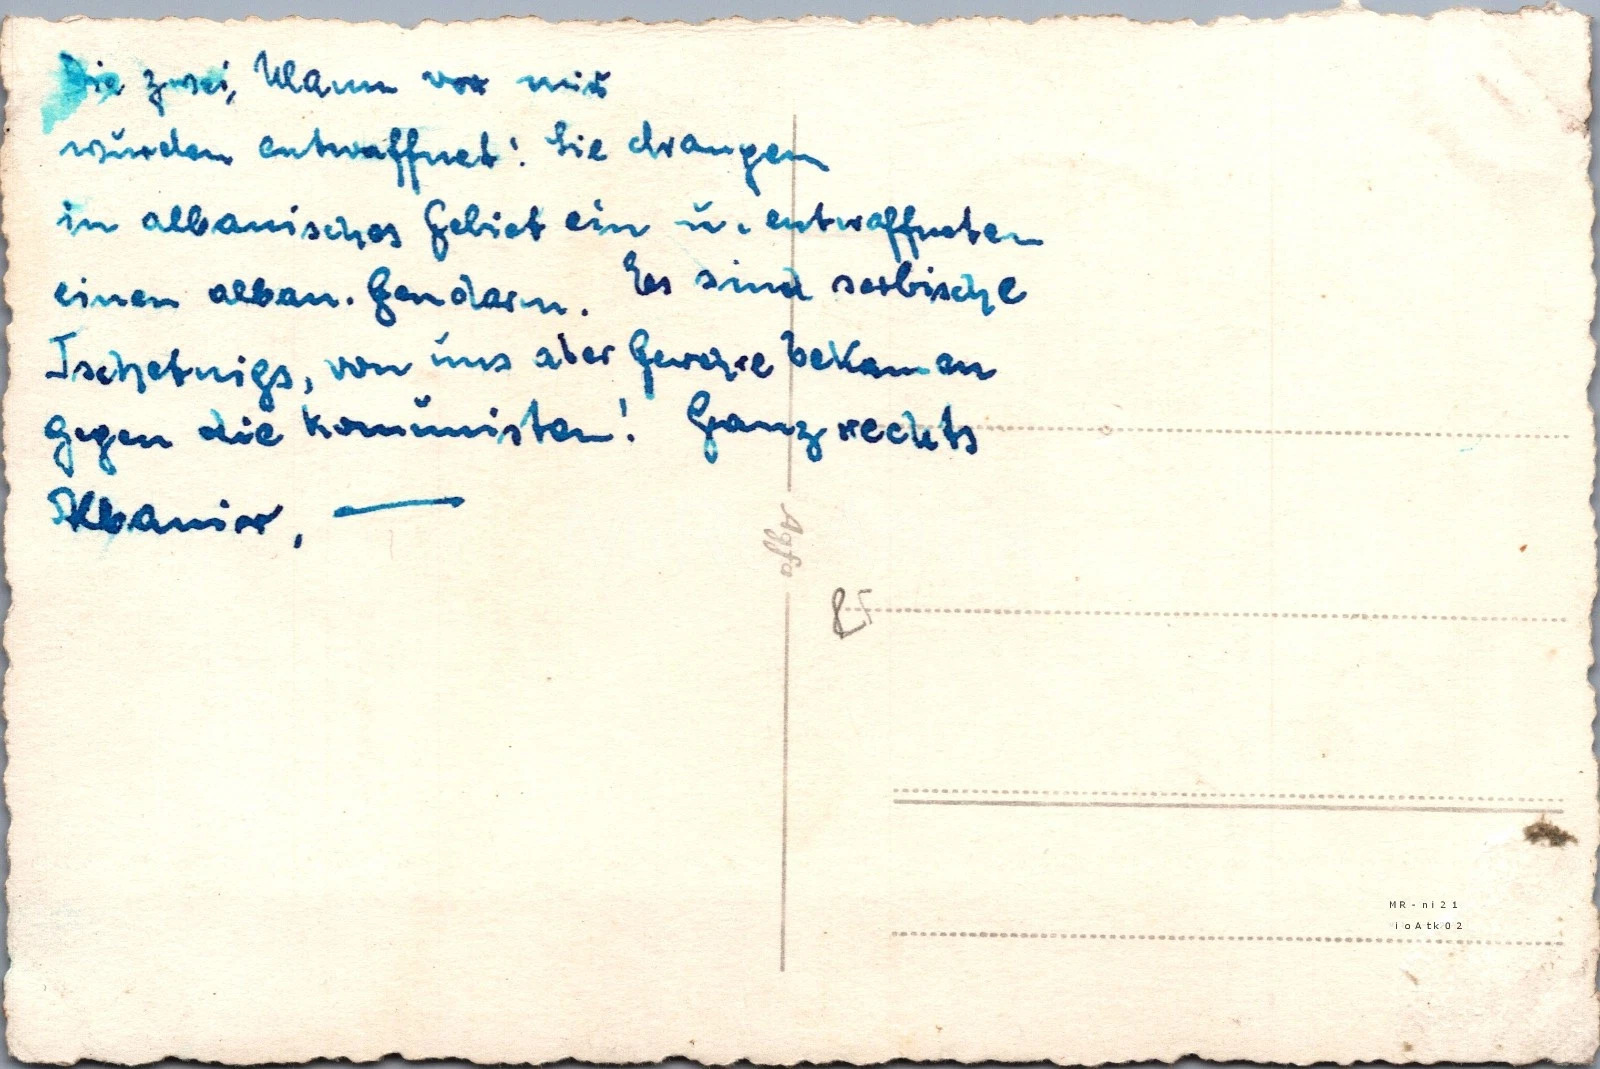 Die zwei, Mann vor mir
wurden entwaffnet! Sie drangen
in albanisches Gebiet ein u. entwaffneten
einen alban. Gendarm. Es sind serbische
Tschetnigs, von uns aber Gewehre bekamen
gegen die Komunisten! Ganz rechts
Albanier,
Agfa
85
MR-ni21
ioAtk02